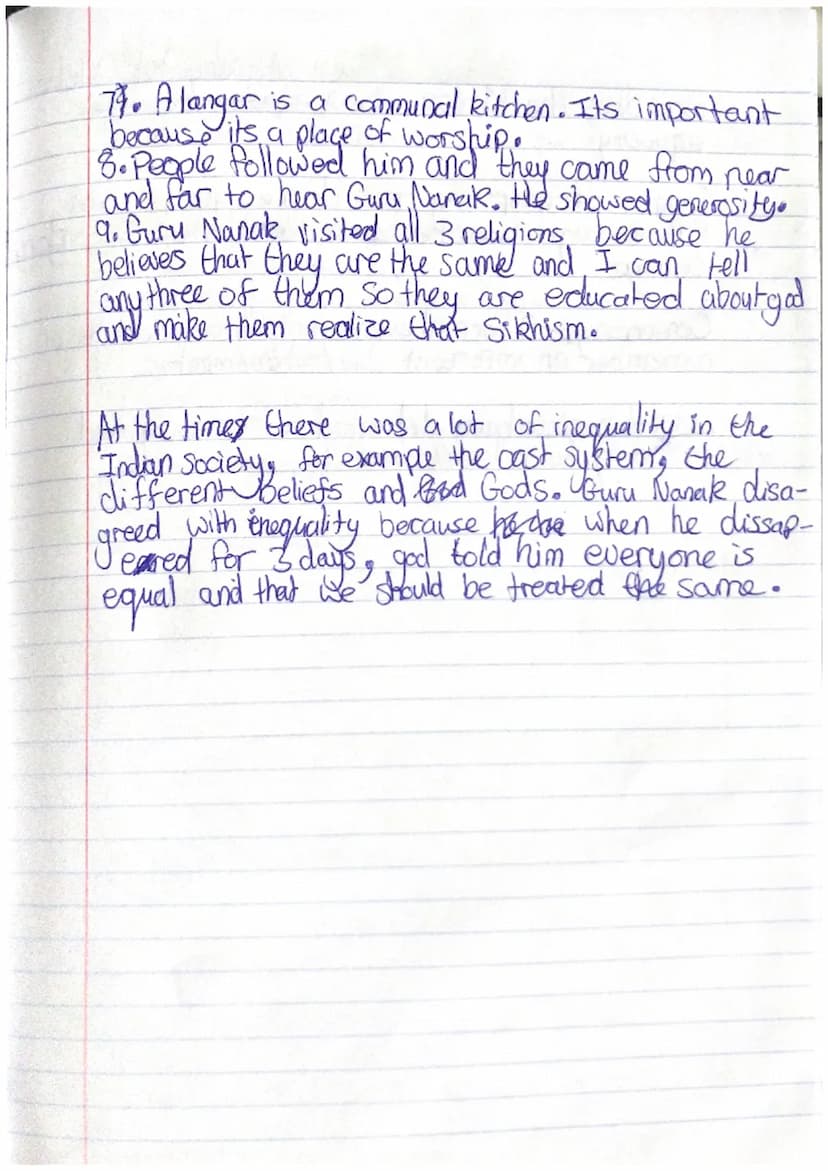 7. A langar is a communal kitchen. Its important
because its a place of worship.
8. People followed him and they came from near
and far to hear Guru Nanak. He showed generosity.
9. Guru Nanak visited all 3 religions because he
believes that they are the same and I can tell
any three of them so they are educated about god
and make them realize that Sikhism.
At the time there was a lot of inequality in the
Indian society, for example the cast system, the
different beliefs and Gods. Guru Nanak disa-
greed with inequality because when he dissap-
eared for 3 days, god told him everyone is
equal and that we should be treated the same.